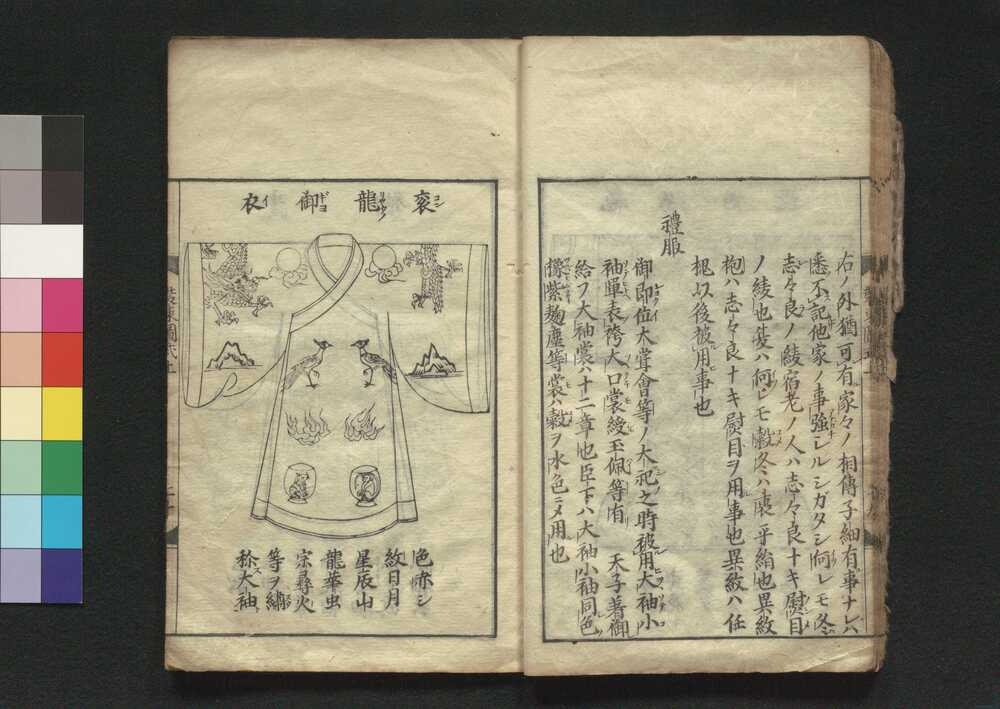 右ノ外猶可有家々ノ相傳子細有事ナレハ
悉不記他家ノ事強シルシガタシ何レモ冬
志々良ノ綾宿老ノ人ハ志々良ナキ熨目
ノ綾也夏ハ何レモ縠冬ハ裏平絹也異紋
袍ハ志々良ナキ熨目ヲ用事也異紋ハ任
槐以後被用事也
禮服
御即位大嘗會等ノ大祀之時被用大袖小
袖單表袴大口裳綬玉佩等有 天子着御
給フ大袖裳ハ十二章也臣下ハ大袖小袖同色
橡紫麹塵等裳ハ縠ヲ水色ニメ用也
袞龍御衣
色赤シ
紋日月
星辰山
龍華虫
宗尋火
等ヲ繍
称大袖